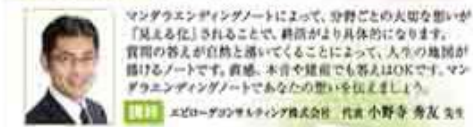 マンダラエンディングノートによって、分野ごとの大切な想いが
「見える化」されることで、終活がより具体的になります。
質問の答えが自然と湧いてくることによって、人生の地図が
描けるノートです。直感、本音や建前でも答えはOKです。マン
ダラエンディングノートであなたの想いを伝えましょう。
講師 エピローグコンサルティング株式会社 代表 小野寺 秀友 先生